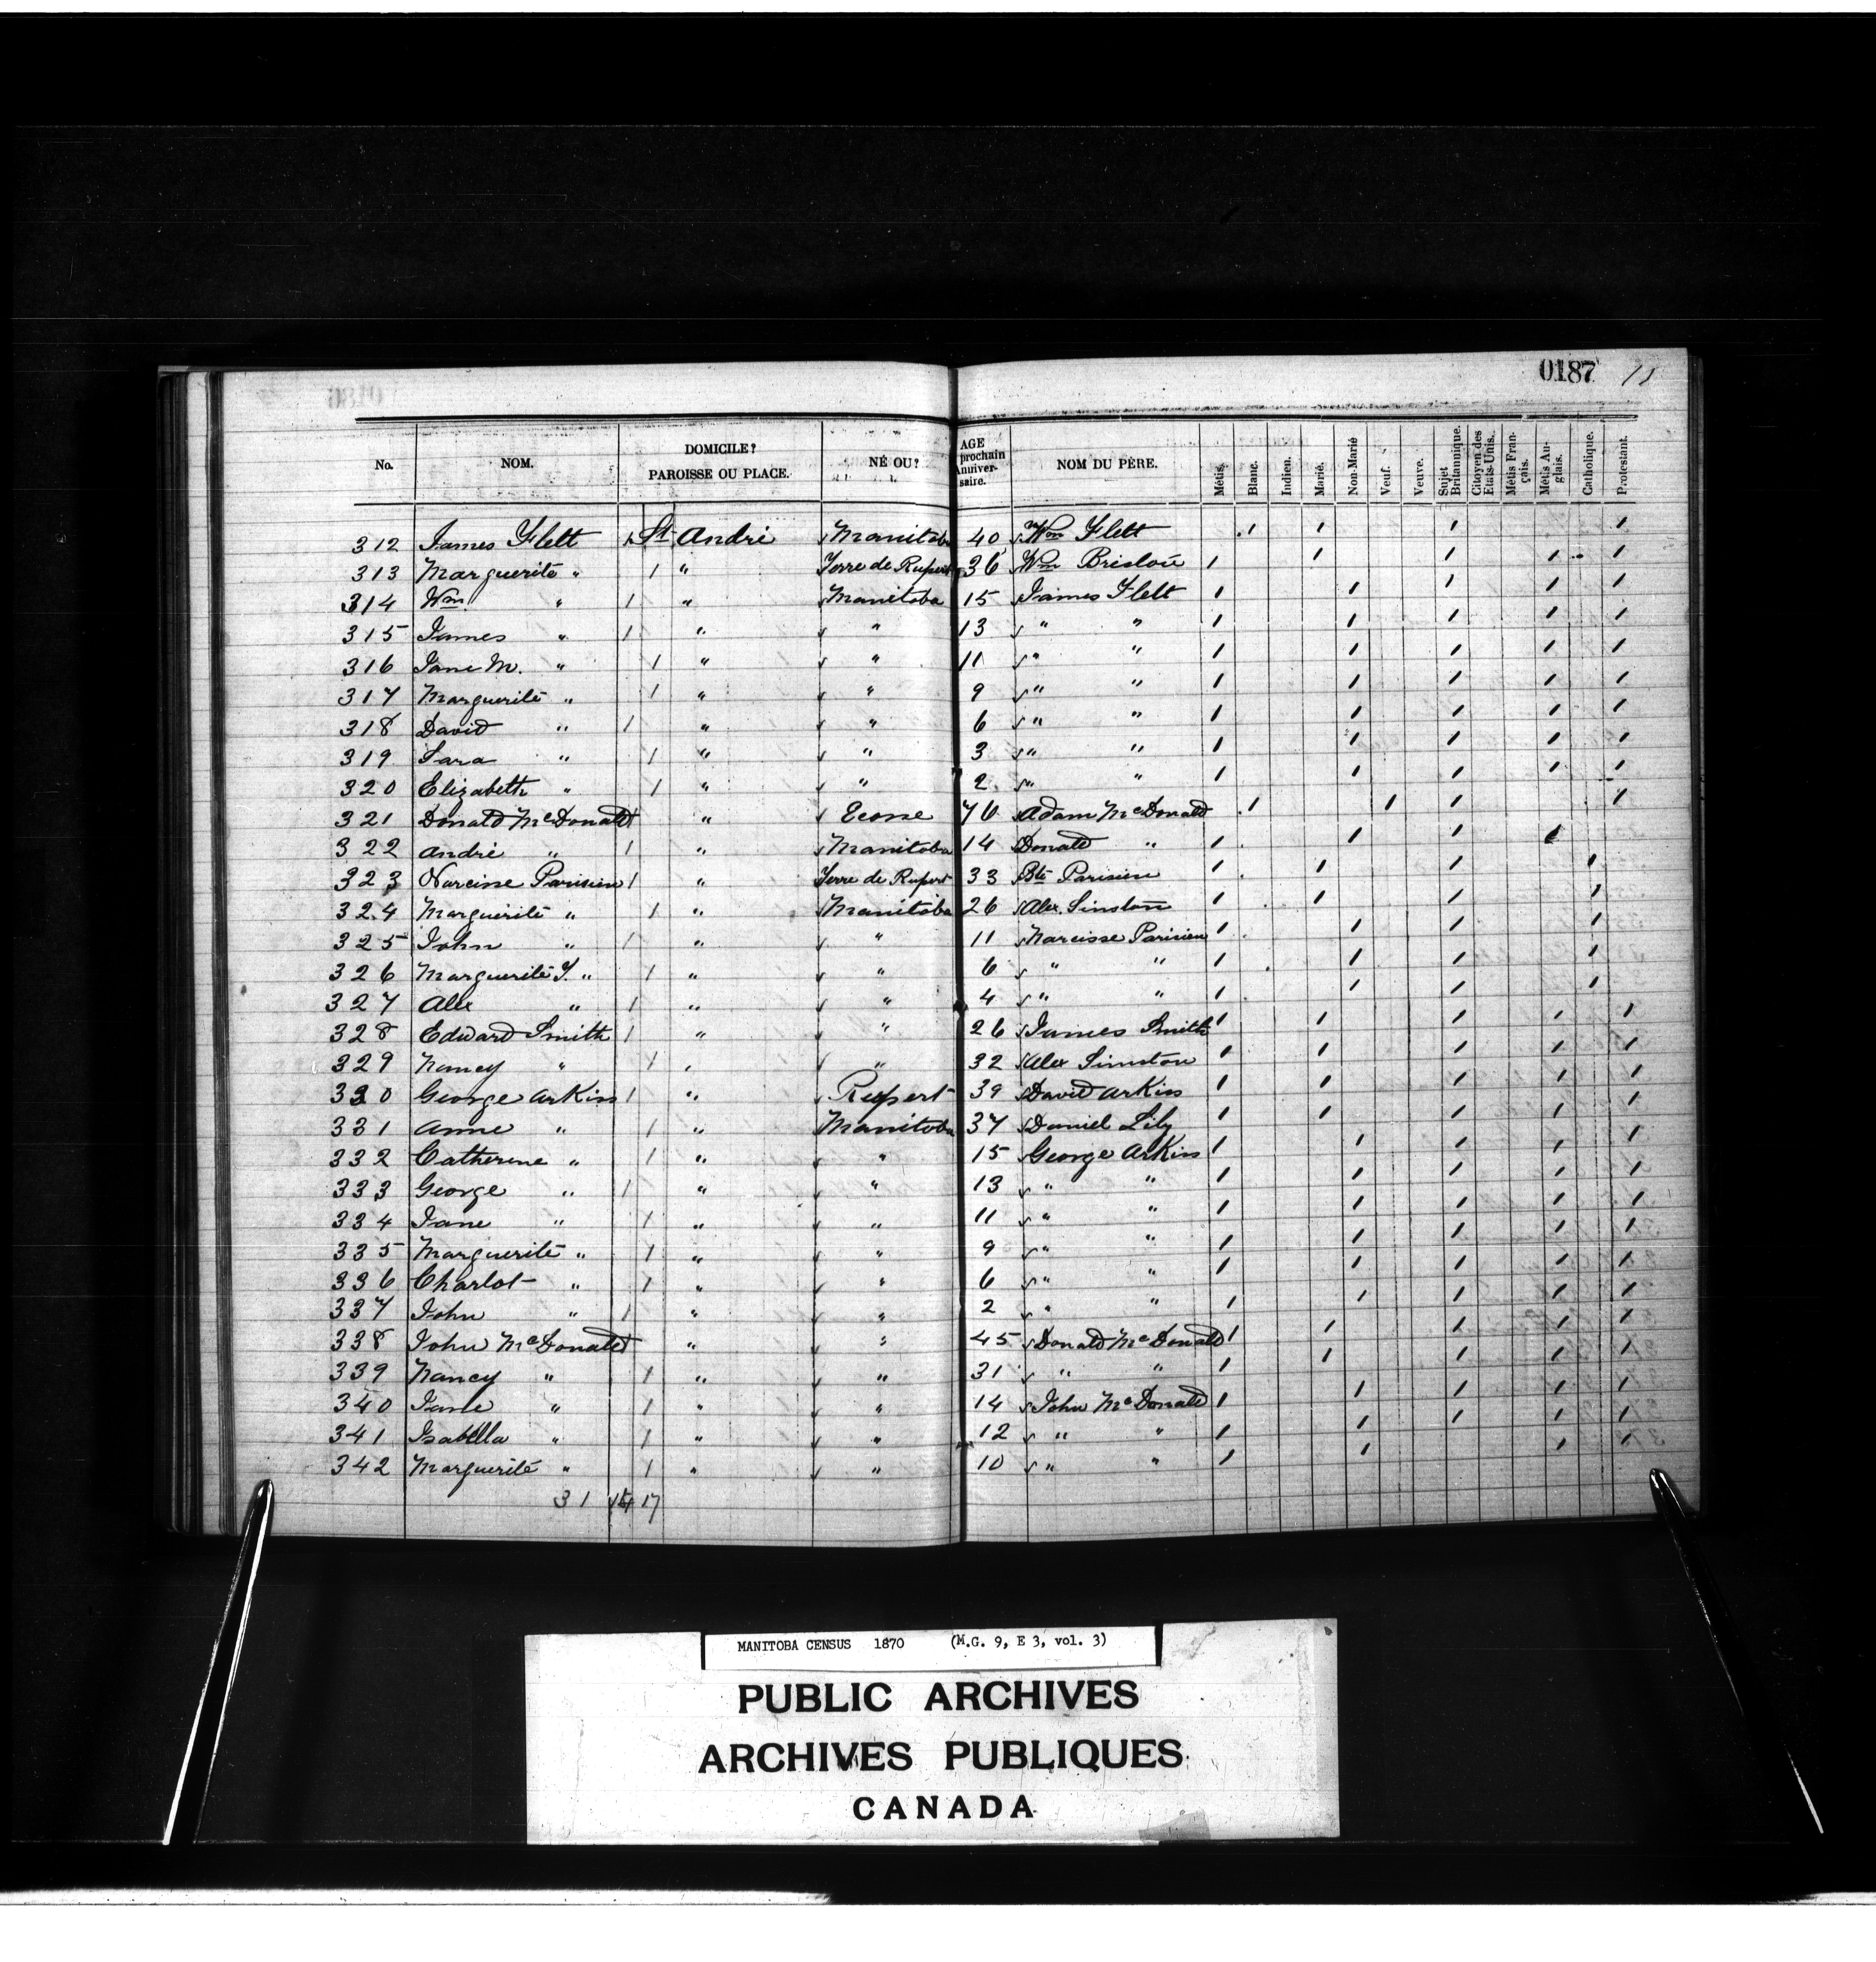 0187
No. NOM. DOMICILE? PAROISSE OU PLACE. NÉ OU? AGE prochain Anniversaire. NOM DU PÈRE. Métis. Blanc. Indien. Marié. Non-Marié Veuf. Veuve. Sujet Britannique. Citoyen des Etats-Unis. Métis Français. Métis Anglais. Catholique. Protestant.
312 James Flett 1 St André Manitoba 40 Wm Flett 1 1 1 1
313 Marguerite " 1 " Terre de Rupert 36 Wm 1 1 1 1 1
314 Wm. " 1 " Manitoba 15 James Flett 1 1 1 1 1
315 James " 1 " " 13 " " 1 1 1 1 1
316 Jane M. " 1 " " 11 " " 1 1 1 1 1
317 Marguerite " 1 " " 9 " " 1 1 1 1 1
318 David " 1 " " 6 " " 1 1 1 1 1
319 Sara " 1 " " 3 " " 1 1 1 1 1
320 Elizabeth " 1 " " 2 " " 1 1 1 1 1
321 Donald McDonald 1 " Ecosse 76 Adam McDonald 1 1 1 1
322 André " 1 " Manitoba 14 Donald " 1 1 1 1
323 Narcisse Parisien 1 " Terre de Rupert 33 Bte Parisien 1 1 1 1
324 Marguerite " 1 " Manitoba 26 Alex. Sinston 1 1 1 1
325 John " 1 " " 11 Narcisse Parisien 1 1 1 1
326 Marguerite J. " 1 " " 6 " " 1 1 1 1
327 Alex " 1 " " 4 " " 1 1 1 1
328 Edward Smith 1 " " 26 James Smith 1 1 1 1 1
329 Nancy " 1 " " 32 Alex Simston 1 1 1 1 1
330 George Arkiss 1 " Rupert 39 David Arkiss 1 1 1 1 1
331 Anne " 1 " Manitoba 37 Daniel Lily 1 1 1 1 1
332 Catherine " 1 " " 15 George Arkiss 1 1 1 1 1
333 George " 1 " " 13 " " 1 1 1 1 1
334 Jane " 1 " " 11 " " 1 1 1 1 1
335 Marguerite " 1 " " 9 " " 1 1 1 1 1
336 Charlot " 1 " " 6 " " 1 1 1 1 1
337 John " 1 " " 2 " " 1 1 1 1 1
338 John McDonald 1 " " 45 Donald McDonald 1 1 1 1 1
339 Nancy " 1 " " 31 " " 1 1 1 1 1
340 Jane " 1 " " 14 John McDonald 1 1 1 1 1
341 Isabella " 1 " " 12 " " 1 1 1 1 1
342 Marguerite " 1 " " 10 " " 1 1 1 1
31 14 17
MANITOBA CENSUS 1870 (M.G. 9, E 3, vol. 3)
PUBLIC ARCHIVES
ARCHIVES PUBLIQUES
CANADA